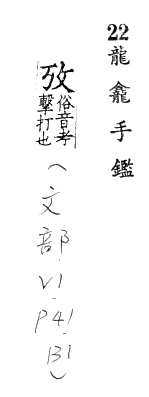 22龍龕手鑑
攷 俗音考
擊打也
(文部.V1.P41.B1)